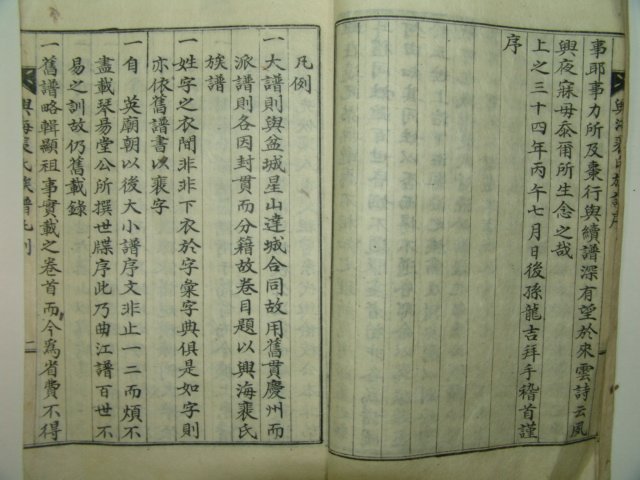 興海裵氏族譜序
事耶事力所及棗行與續譜深有望於來雲詩云風
興夜寐毋忝爾所生念之哉
上之三十四年丙午七月日後孫龍吉拜手稽首謹
序
凡例
一大譜則與盆城星山達城合同故用舊貫慶州而
派譜則各因封貫而分籍故卷目題以興海裵氏
族譜
一姓字之衣間非非下衣於字彙字典俱是如字則
亦依舊譜書以裵字
一自 英廟朝以後大小譜序文非止一二而煩不
盡載琴易堂公所撰世牒序此乃曲江譜百世不
易之訓故仍舊載錄
一舊譜略輯顯祖事實載之卷首而今爲省費不得
興海裵氏族譜凡例
二